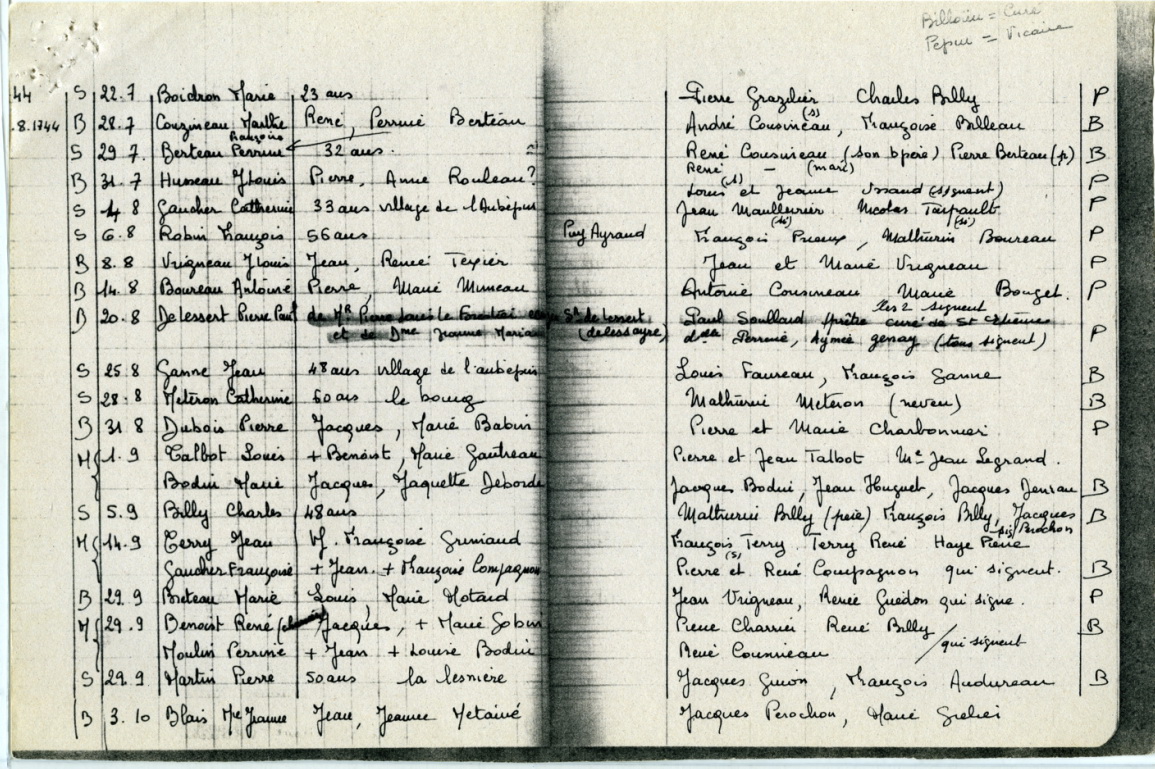 Billoüin = Curé
Pepin = Vicaire
44 S 22.7 Boidron Marie 23 ans Pierre Grazilier Charles Billy P
.8.1744 B 28.7 Couzineau Marthe René, Perrine Berteau André Cousineau (s), Françoise Billeau B
Françoise
S 29 7. Berteau Perrine 32 ans. René Cousineau (son bpère) Pierre Berteau (p) B
René - (mari)
B 31.7 Huneau JLouis Pierre, Anne Rouleau? Louis (s) et Jeanne (signent) P
S 4 8 Gaucher Catherine 33 ans village de l'Aubepin Jean Maulleurier Nicolas P
S 6.8 Robin François 56 ans Puy Ayraud François Prieux (s), Mathurin Boureau (s) P
B 8.8 Vrigneau JLouis Jean, Renée Texier Jean et Marie Vrigneau P
B 14.8 Boureau Antoine Pierre, Marie Mimeau Antoine Cousineau Marie Bouget. P
les 2 signent
B 20.8 Delessert Pierre Paul de Mr Pierre Louis le Sr de Lessert Paul Soullard prêtre curé de St
et de Dme Jeanne Maria (delessayre) Perrine, Aymée genay (tous signent) P
S 25.8 Ganne Jean 48 ans village de l'aubepin Louis Faureau, François Ganne B
S 28.8 Meteron Catherine 60 ans le bourg Mathurin Meteron (neveu) B
B 31 8 Dubois Pierre Jacques, Marie Babin Pierre et Marie Charbonnier P
M { 1.9 Talbot Louis + Benoist, Marie Gautreau Pierre et Jean Talbot Me Jean Legrand.
Bodin Marie Jacques, Jaquette Deborde Jacques Bodin, Jean Huguet, Jacques Deniau B
S 5.9 Billy Charles 48 ans Mathurin Billy (père) François Billy, Jacques B
Perochon
M { 14.9 Terry Jean Vf. Françoise Grimaud François (s) Terry Terry René Haye Pierre
Gaucher Françoise + Jean. + Françoise Compagnon Pierre et René Compagnon qui signent. B
B 29.9 Breteau Marie Louis, Marie Motard Jean Vrigneau, Renée Guédon qui signe. P
M { 29.9 Benoist René Jacques, + Marie Gobin Pierre Charrier René Billy B
Moulin Perrine + Jean + Louise Bodin René / qui signent
S 29.9 Martin Pierre 50 ans la lesniere Jacques Guion, François Audureau B
B 3.10 Blais Me Jeanne Jean, Jeanne Metaivé Jacques Perochon, Marie Grelier